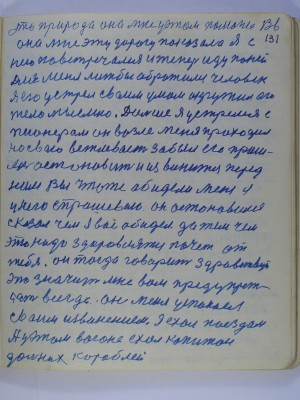 это природа она мне в этом помогла
131
она мне эту дорогу показала Я с
нею повстречался и теперь иду по ней
для меня чтобы обратили человек
Я его устрел своим умом окружил его
тело мыслью. Дальше Я устрелся с
пионерам он возле меня проходил
но свою вежлевасть забыл его приш-
лося остоновить и извинится перед
ним Вы что же абидели меня у
у него страшевою он остоновился
сказал чем Я вас абидел да тем чем
это надо здаровоится почет от
тебя. он тогда говорит здравствуй
это значить мне вам предупреж-
дат всегда. он меня успокоел
своим извенением. Я ехал поездам
А в этом вогоне ехал капитан
дальних кораблей